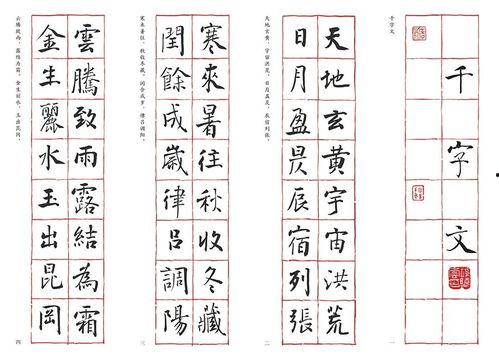 千字文
千字文
一
天地玄黃宇宙洪荒
日月盈昃辰宿列張
天地玄黄，宇宙洪荒。日月盈昃，辰宿列张。
二
寒來暑往秋收冬藏
閏餘成歲律呂調陽
寒来暑往，秋收冬藏。闰余成岁，律吕调阳。
三
雲騰致雨露結為霜
金生麗水玉出崑岡
云腾致雨，露结为霜。金生丽水，玉出昆冈。
四